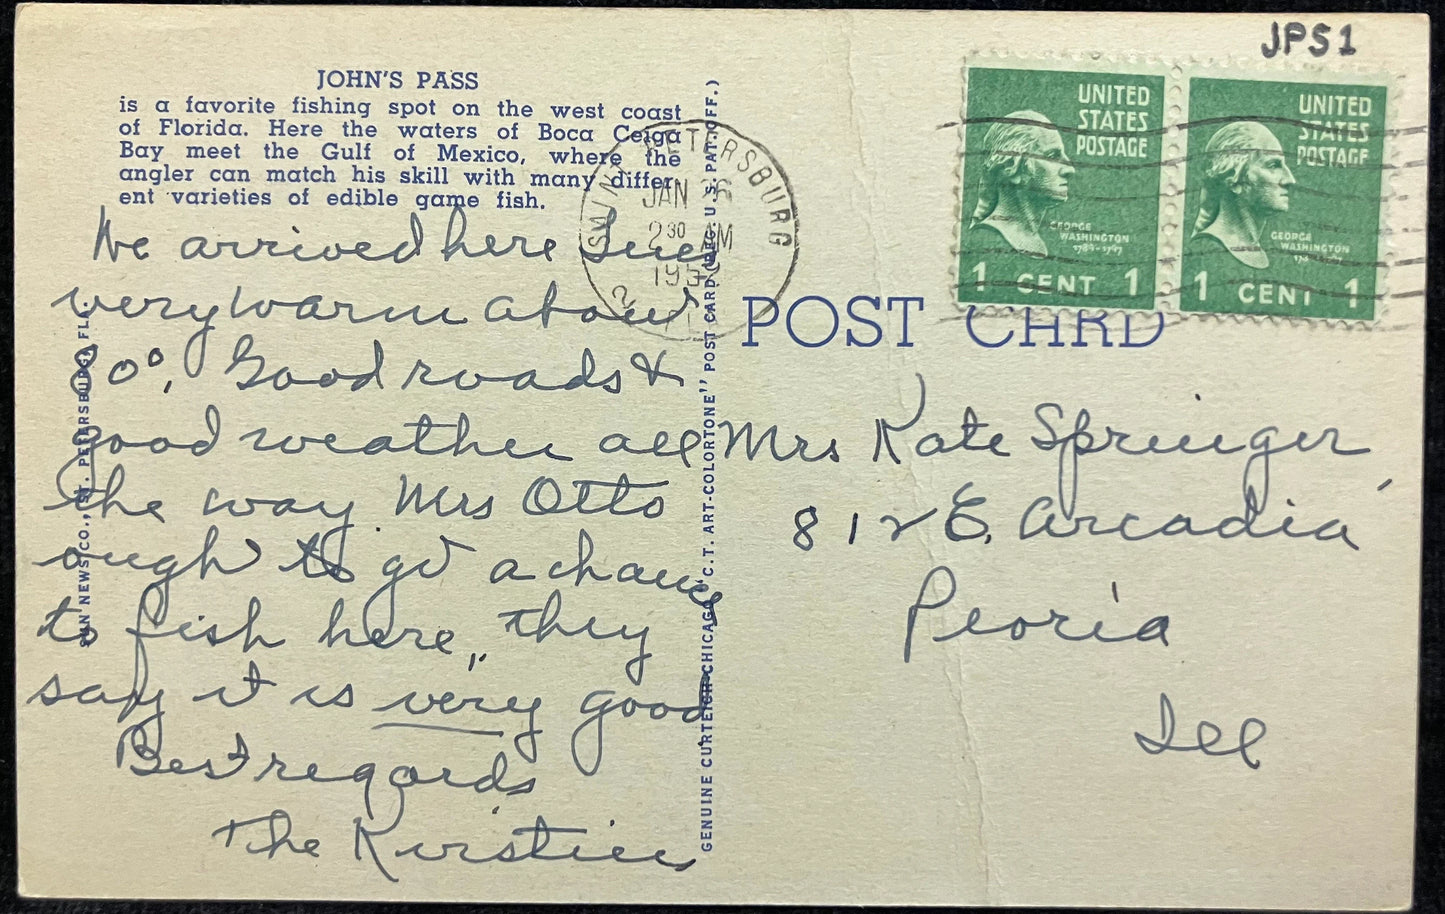 JP51
JOHN'S PASS
is a favorite fishing spot on the west coast
of Florida. Here the waters of Boca Ceiga
Bay meet the Gulf of Mexico, where the
angler can match his skill with many differ-
ent varieties of edible game fish.
We arrived here Tues
very warm about
80°. Good roads &
good weather all
the way. Mrs Otto
ough to git a chance
to fish here, They
say it is very good
Best regards
The
SUN NEWS CO., ST. PETERSBURG, FLA.
GENUINE CURTEICH-CHICAGO "C.T. ART-COLORTONE" POST CARD (REG. U.S. PAT. OFF.)
PETERSBURG
JAN 16
2 30 AM
UNITED
STATES
POSTAGE
GEORGE
WASHINGTON
1789-1797
1 CENT 1
UNITED
STATES
POSTAGE
GEORGE
WASHINGTON
1 CENT 1
POST CARD
Mrs Kate Springer
812 E. Arcadia
Peoria
Ill